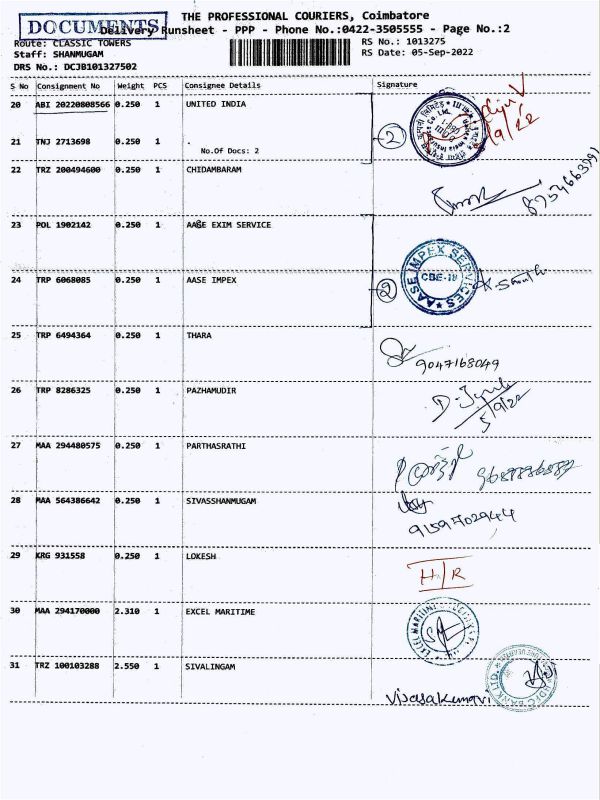 DOCUMENTS
THE PROFESSIONAL COURIERS, Coimbatore
Delivery Runsheet - PPP - Phone No.:0422-3505555 - Page No.:2
Route: CLASSIC TOWERS
RS No.: 1013275
Staff: SHANMUGAM
RS Date: 05-Sep-2022
DRS No.: DCJB101327502
S No Consignment No Weight PCS Consignee Details Signature
20 ABI 20220808566 0.250 1 UNITED INDIA
21 TNJ 2713698 0.250 1 .
No.Of Docs: 2
2
22 TRZ 200494600 0.250 1 CHIDAMBARAM
23 POL 1902142 0.250 1 AASE EXIM SERVICE
AASE IMPEX SERVICES
CBE-18
24 TRP 6068085 0.250 1 AASE IMPEX
2
25 TRP 6494364 0.250 1 THARA
9047168049
26 TRP 8286325 0.250 1 PAZHAMUDIR
5/9/22
27 MAA 294480575 0.250 1 PARTHASRATHI
28 MAA 564386642 0.250 1 SIVASSHANMUGAM
9159702944
29 KRG 931558 0.250 1 LOKESH
H/R
30 MAA 294170000 2.310 1 EXCEL MARITIME
31 TRZ 100103288 2.550 1 SIVALINGAM
HDFC BANK LTD.